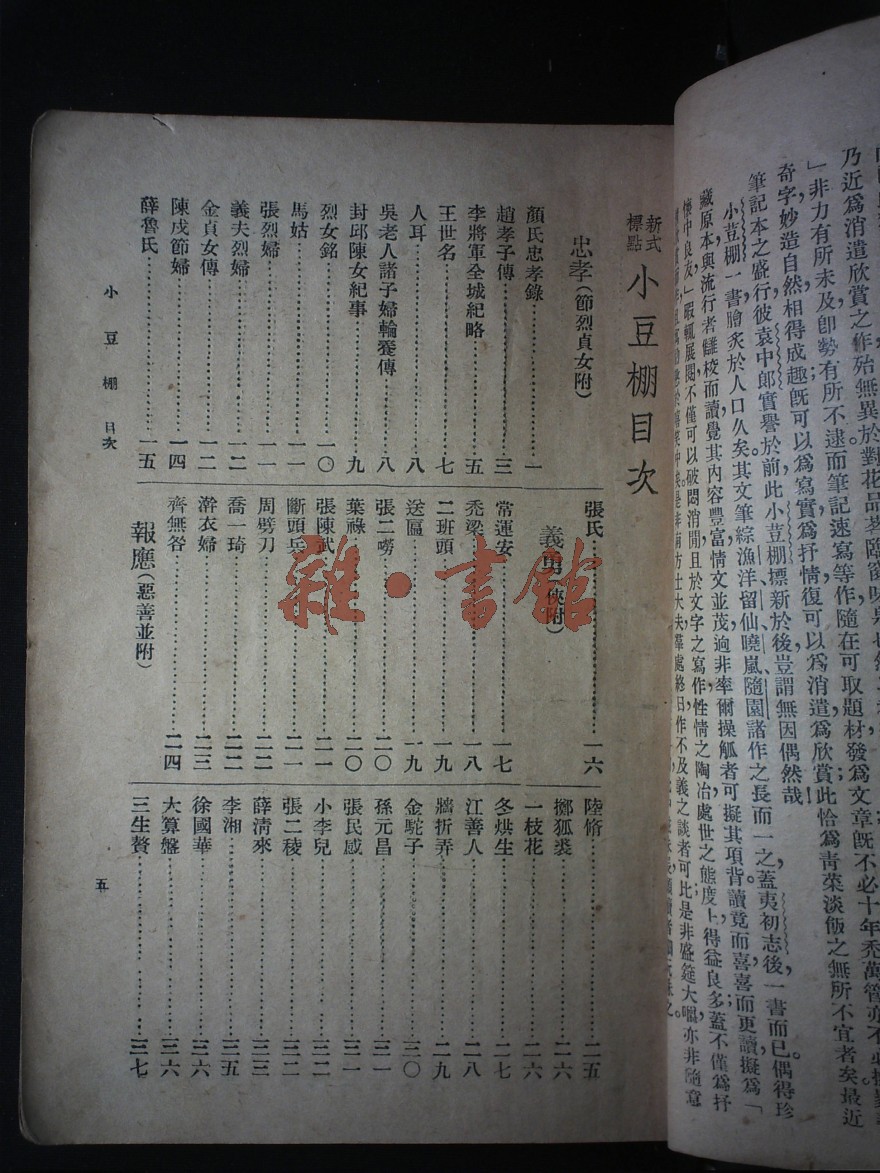 乃近爲消遣欣賞之作殆無異於對花品茗臨窗
」非力有所未及卽勢有所不逮而筆記速寫等作隨在可取題材發爲文章旣不必十年禿萬管亦不必
奇字妙造自然相得成趣旣可以爲寫實爲抒情復可以爲消遣爲欣賞此恰爲靑菜淡飯之無所不宜者矣最近
筆記本之盛行彼袁中郞實譽於前此小荳棚標新於後豈謂無因偶然哉!
小荳棚一書膾炙於人口久矣。其文筆綜漁洋、留仙、曉嵐、隨園諸作之長而一之,蓋夷初志後一書而已。偶得珍
藏原本與流行者讎校而讀覺其內容豐富情文並茂逈非率爾操觚者可擬其項背讀竟而喜喜而更讀擬爲「
懷中良友」暇輒展閱不僅可以破悶消閒且於文字之寫作性情之陶冶處世之態度上得益良多;蓋不僅爲抒
是非南方士大夫羣處終日作不及義之談者可比是非盛筵大嚼亦非隨意
新式標點 小豆棚目次
忠孝(節烈貞女附)
顏氏忠孝錄……一
趙孝子傳……三
李將軍全城紀略……五
王世名……七
人耳……八
吳老人諸子婦輪養傳……八
封邱陳女紀事……九
烈女銘……一〇
馬姑……一一
張烈婦……一一
義夫烈婦……一二
金貞女傳……一二
陳成節婦……一四
薛魯氏……一五
張氏……一六
義勇(俠附)
常運安……一七
禿梁……一八
二班頭……一九
送匾……一九
張二嘮……二〇
葉祿……二〇
張陳武……二一
斷頭兵……二一
周劈刀……二二
喬一琦……二二
澣衣婦……二三
齊無咎……二四
報應(惡善並附)
陸脩……二五
擲狐裘……二六
一枝花……二六
冬烘生……二七
江善人……二八
牆折弄……二九
金駝子……三〇
孫元昌……三一
張民感……三一
小李兒……三二
張二稜……三二
薛淸來……三三
李湘……三五
徐國華……三六
大算盤……三六
三生贅……三七
小豆棚 目次
五
雜·書館